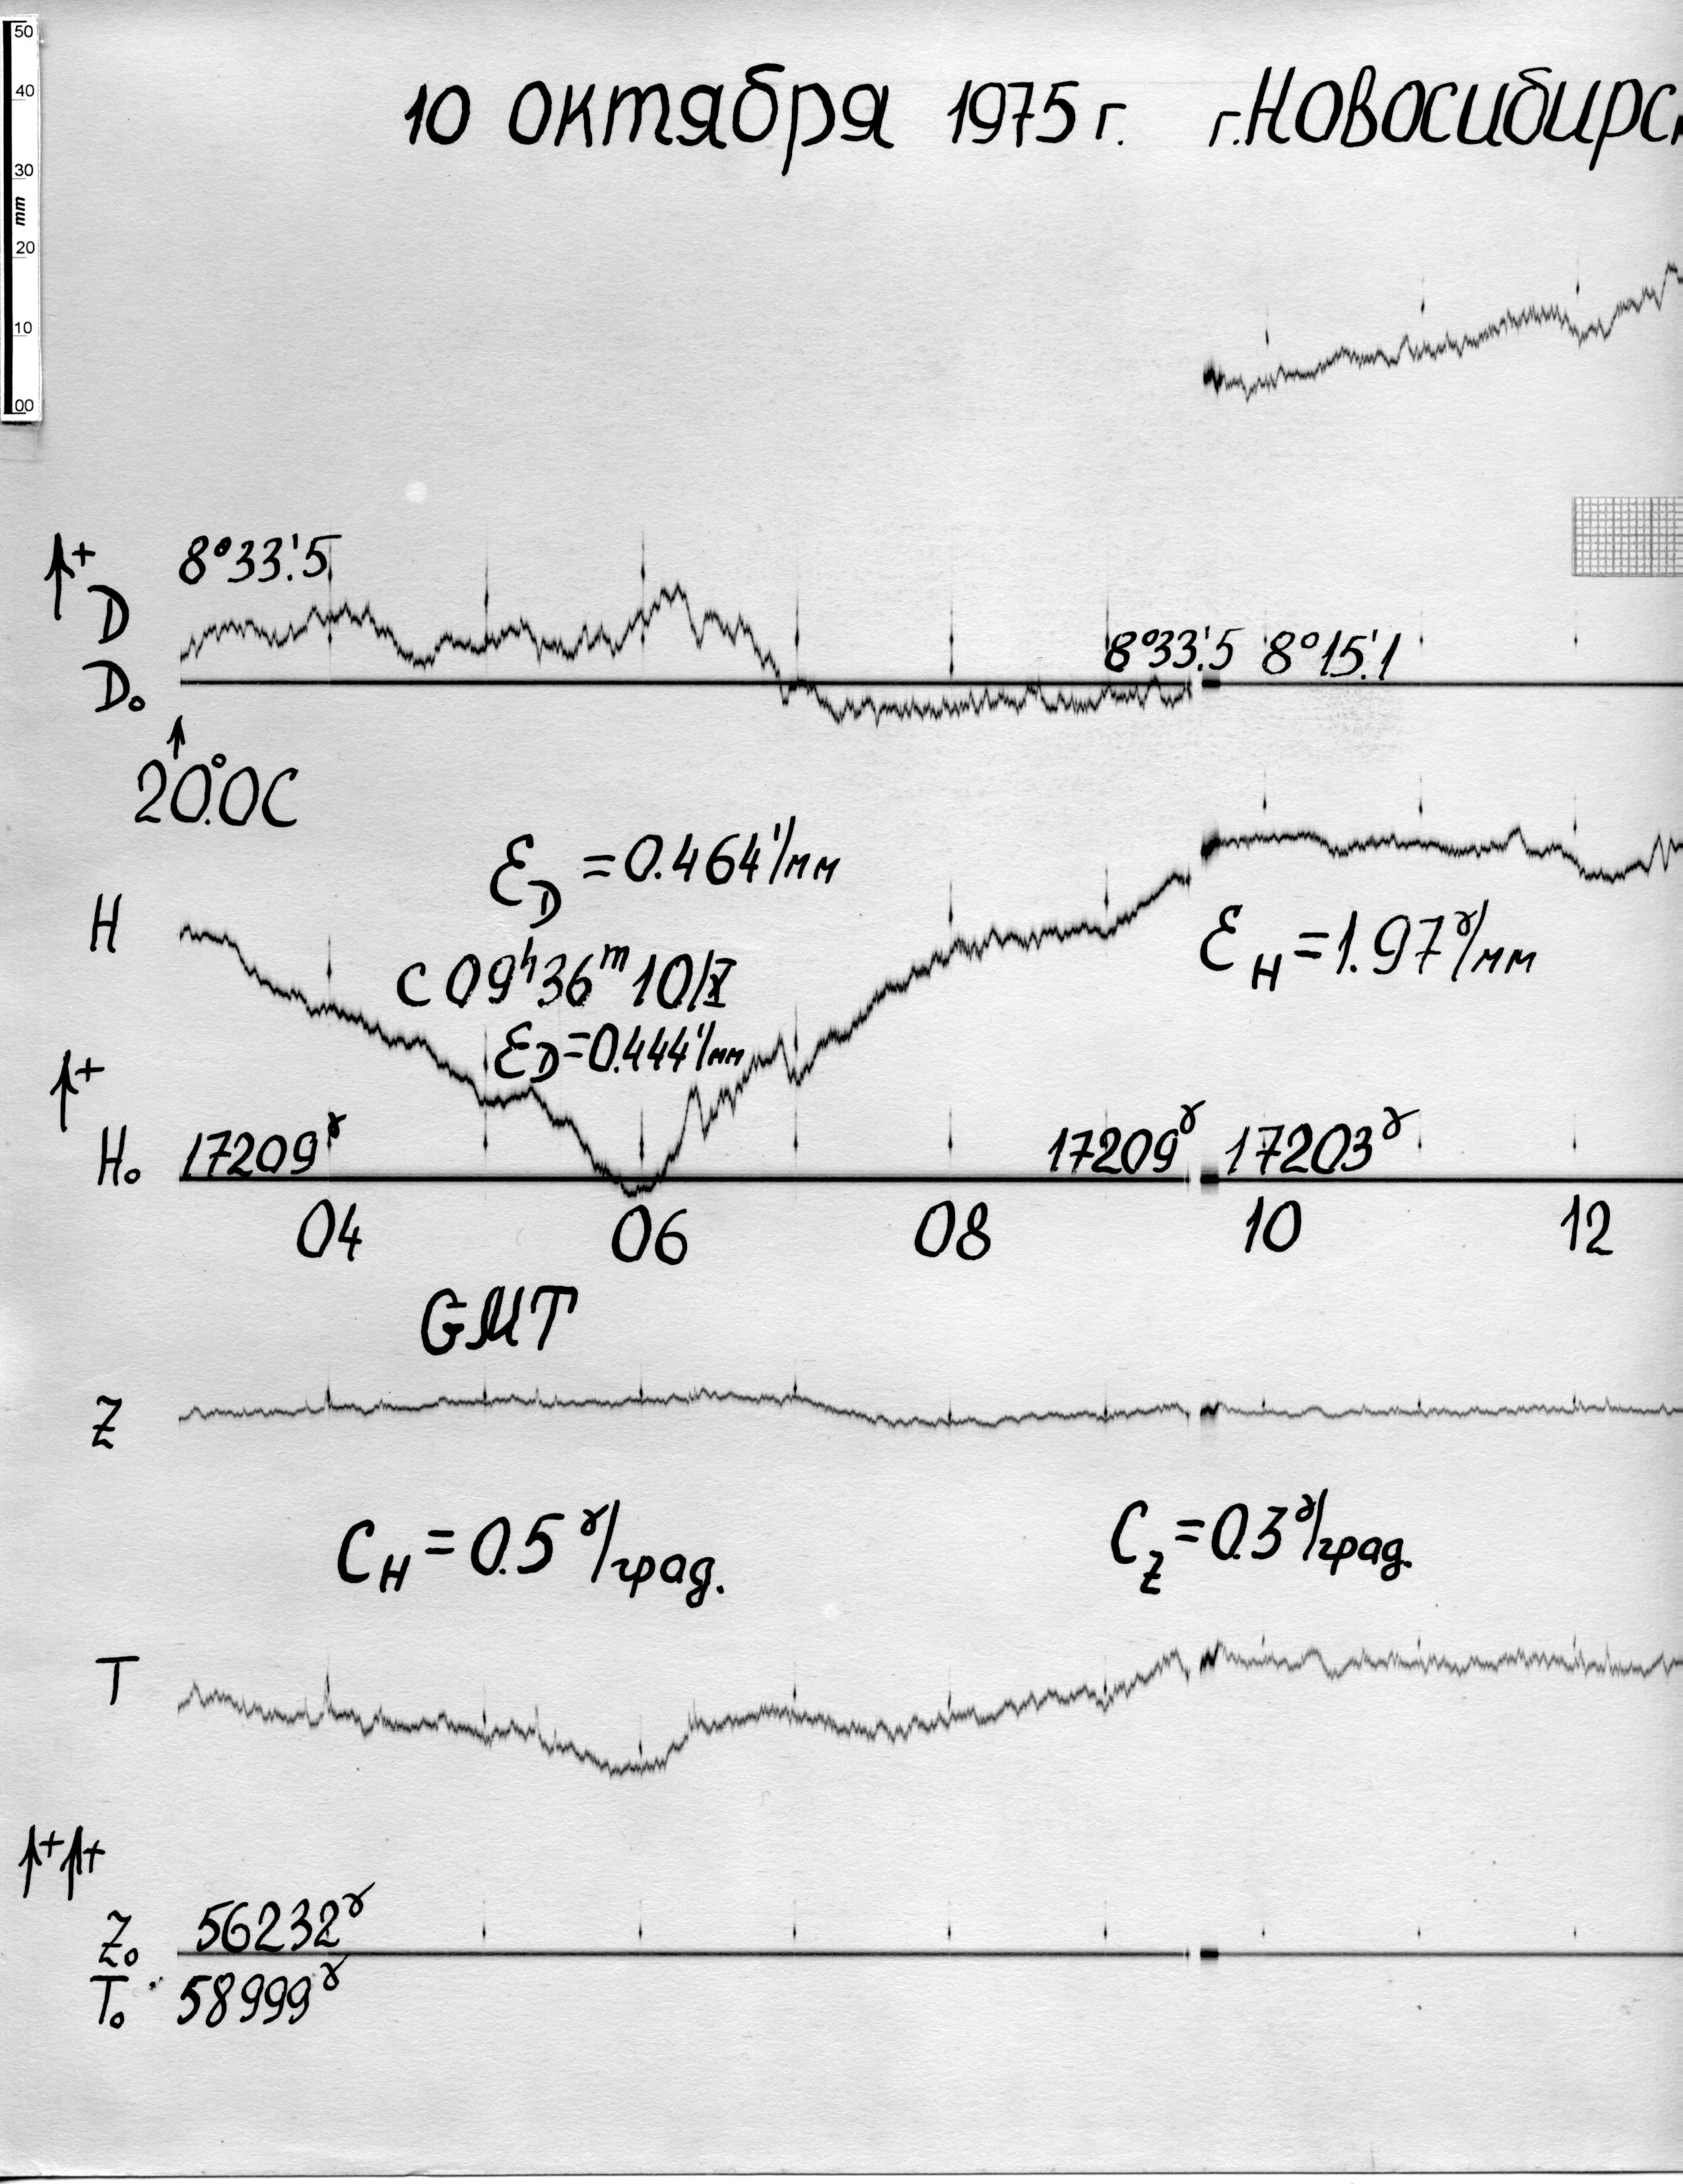 50
40
30
mm
20
10
00
10 октября 1975 г. г.Новосибирс
+
8°33.'5
D
8°33.'5 8°15.'1
D₀
20.°0C
Ɛ_D = 0.464'/мм
H
Ɛ_H = 1.97ˠ/мм
с 09ʰ36ᵐ 10/X
Ɛ_D = 0.444'/мм
+
H₀ 17209ˠ 17209ˠ 17203ˠ
04 06 08 10 12
GMT
Z
C_H = 0.5 ˠ/град. C_Z = 0.3ˠ/град.
T
+ +
Z₀ 56232ˠ
T₀ 58999ˠ